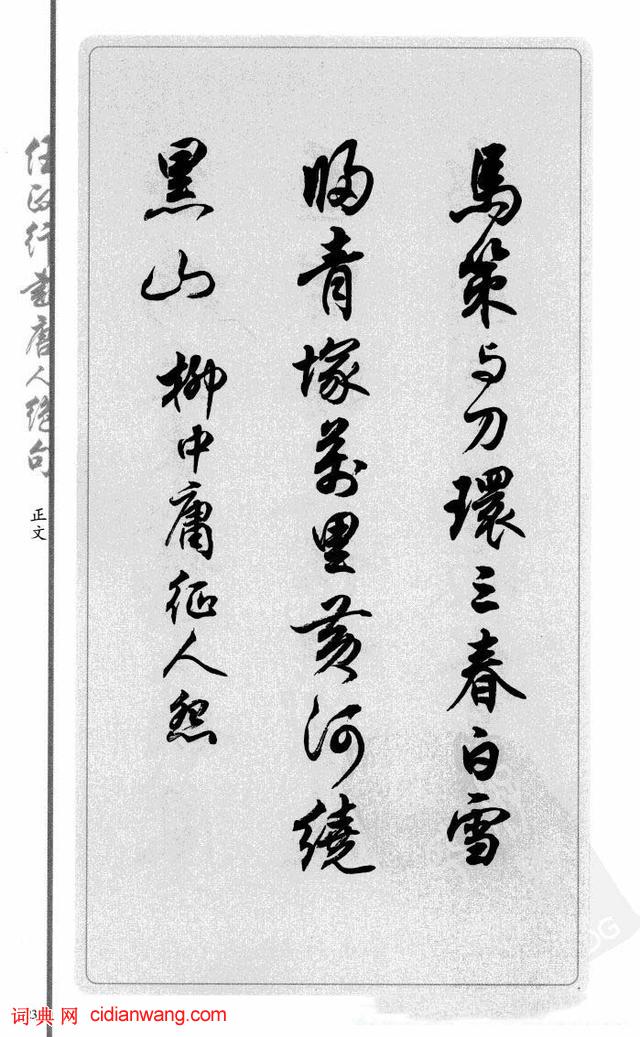 馬策与刀環三春白雪
歸青塚萬里黄河繞
黑山 柳中庸征人怨
任政行書唐人絕句
正文
3
词典网 cidianwang.com